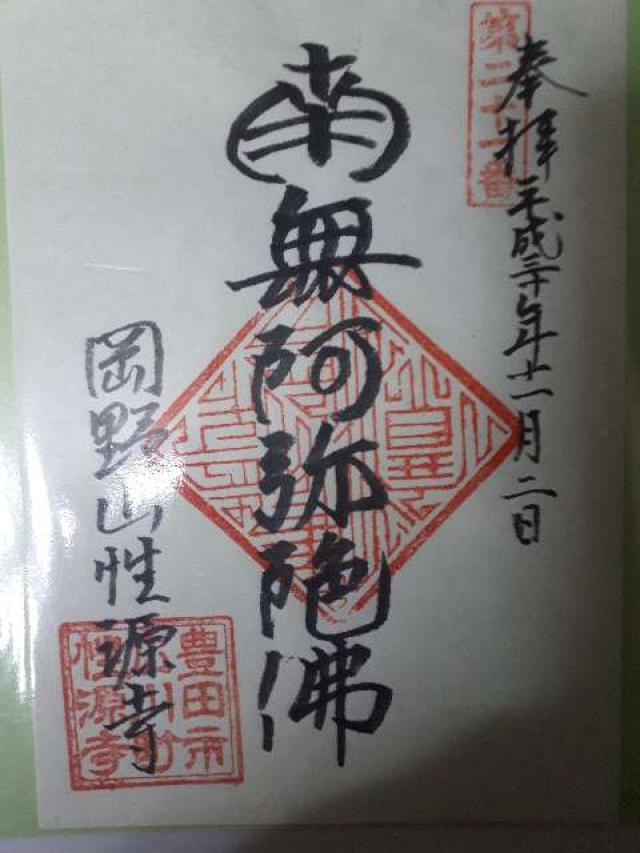 第二十一番
奉拝 平成三十年十一月二日
南無阿弥陀佛
岡野山性源寺
豊田市
性源寺